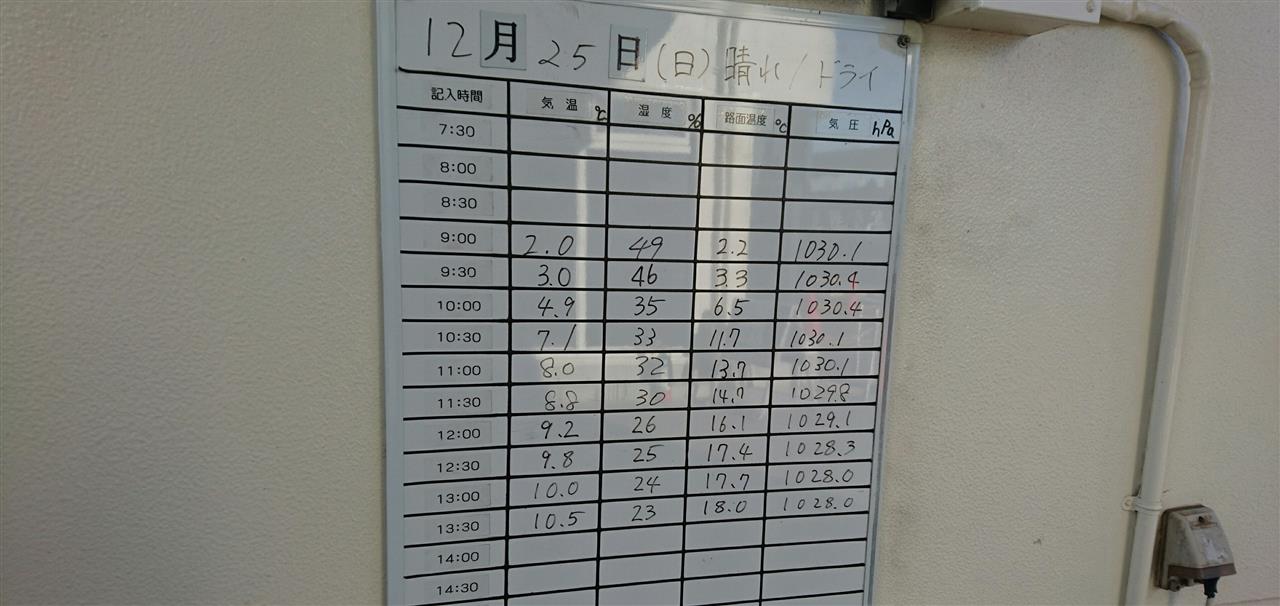 12月25日(日)晴れ/ドライ
記入時間 気温 ℃ 湿度 % 路面温度 ℃ 気圧 hPa
7:30
8:00
8:30
9:00 2.0 49 2.2 1030.1
9:30 3.0 46 3.3 1030.4
10:00 4.9 35 6.5 1030.4
10:30 7.1 33 11.7 1030.1
11:00 8.0 32 13.7 1030.1
11:30 8.8 30 14.7 1029.8
12:00 9.2 26 16.1 1029.1
12:30 9.8 25 17.4 1028.3
13:00 10.0 24 17.7 1028.0
13:30 10.5 23 18.0 1028.0
14:00
14:30